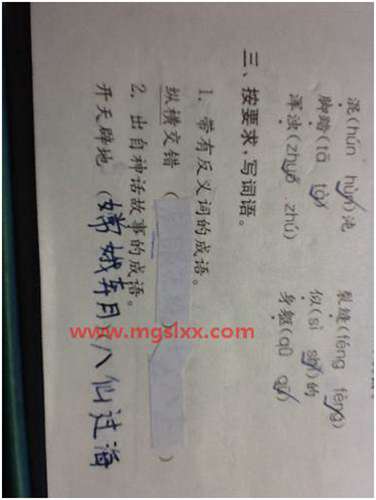 混(hún hùn)沌 裂缝(féng fèng)
脚踏(tā tà) 似(sì shì)的
浑浊(zhuó zhú) 身躯(qū
三、按要求,写词语。
1. 带有反义词的成语。
纵横交错 ( )
2. 出自神话故事的成语。
开天辟地 (嫦娥奔月 八仙过海
www.mgslxx.com